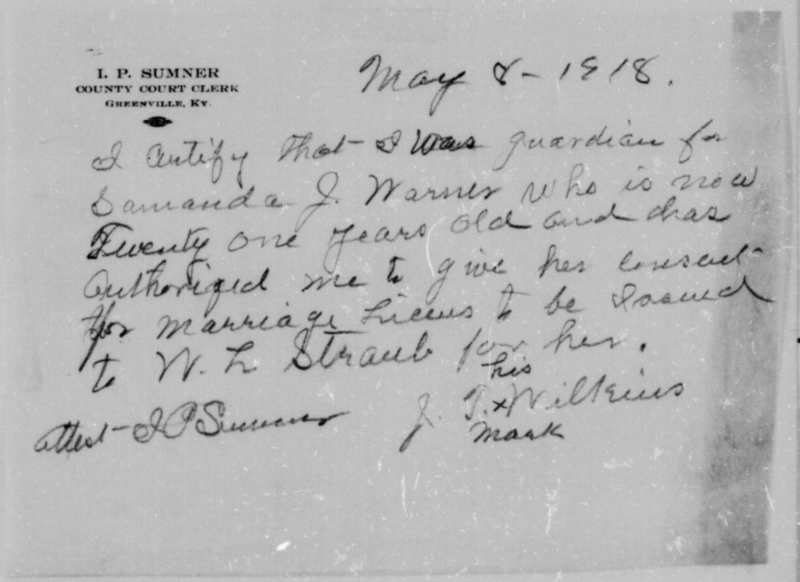 I. P. SUMNER
COUNTY COURT CLERK
GREENVILLE, KY.
May 8 - 1918.
I certify that I was guardian for
Samanda J. Warner who is now
Twenty one years old and has
Authorized me to give her consent
for marriage Licens to be Issued
to W. L Straub for her.
his
J. T. x Wilkins
mark
attest - I P Sumner